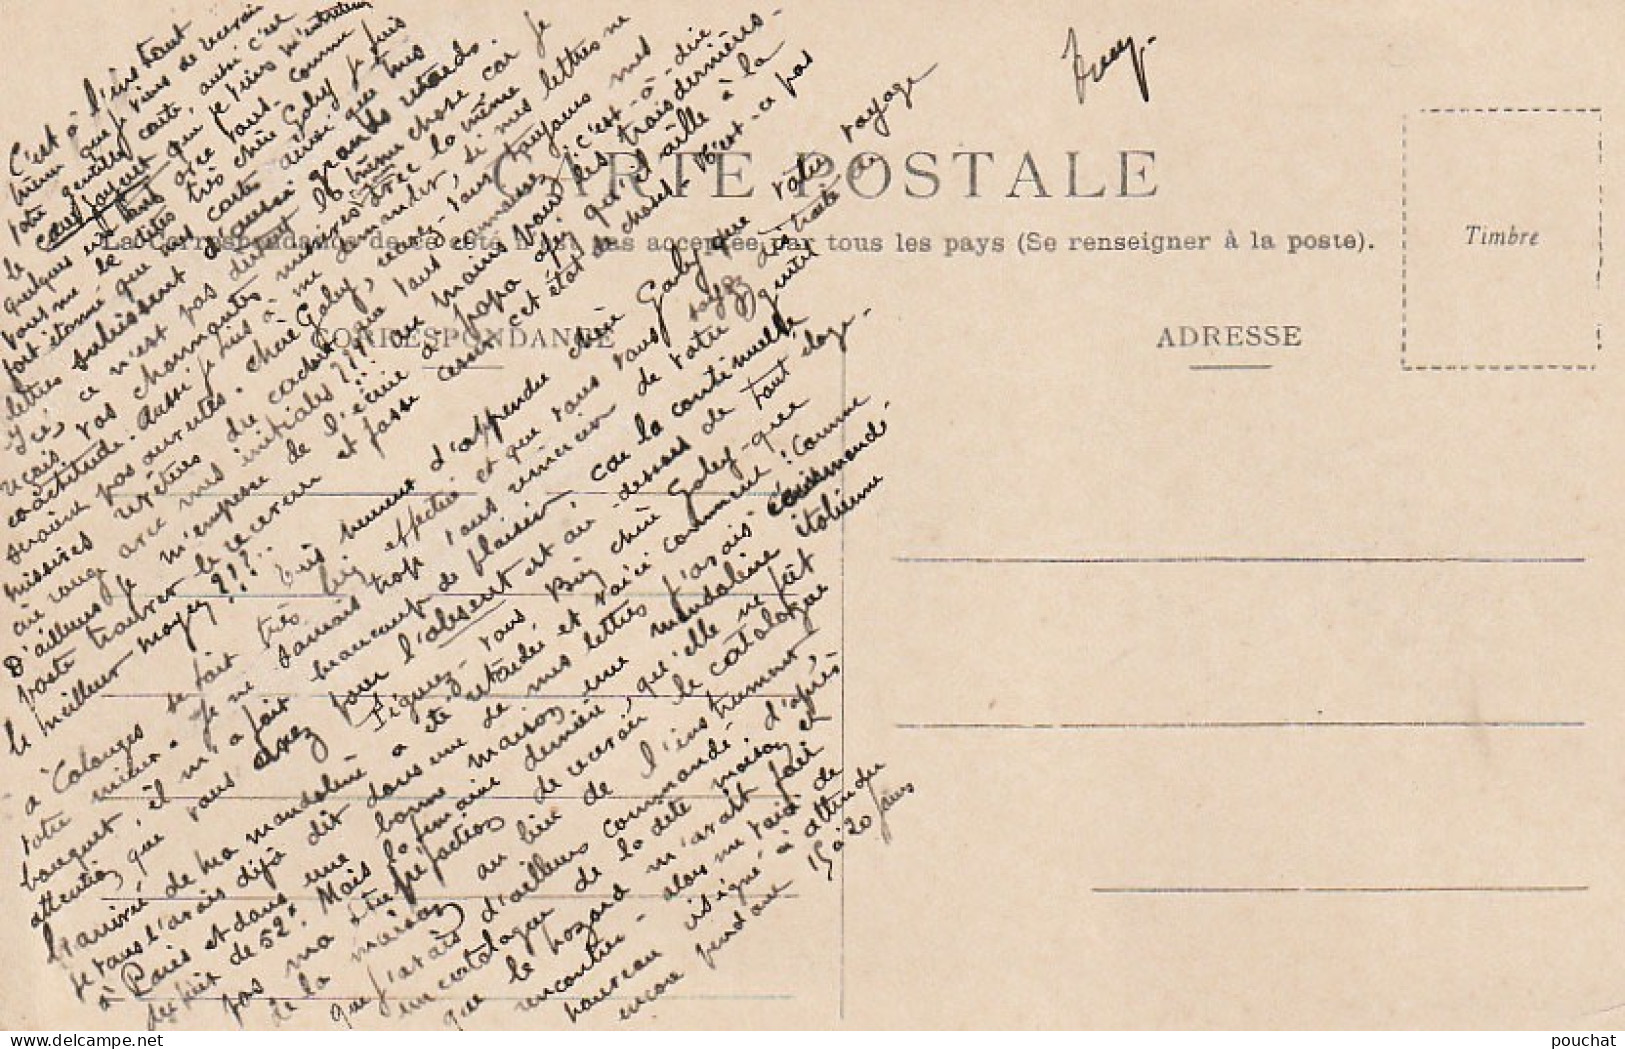 C'est à l'instant
même que je viens de recevoir
votre gentille carte, aussi c'est
le cœur joyeux que je viens m'entretenir
quelques instants avec vous. Comme
vous me le dites très chère Gaby je suis
fort étonné que vos cartes ainsi que mes
lettres subissent d'aussi grands retards.
Ici, ce n'est pas du tout la même chose car je
reçois vos charmantes missives avec la même
exactitude. Aussi je suis à me demander, si mes lettres ne
seraient pas ouvertes. Chère Gaby, recevez-vous toujours mes
missives revêtues du cachet que vous connaissez, c'est-à-dire
cire rouge avec mes initiales??? au moins pour les trois dernières-
D'ailleurs je m'empresse de l'écrire à papa afin qu'il aille à la
poste trouver le receveur et fasse cesser cet état de choses- N'est-ce pas
le meilleur moyen?!?
Suis heureux d'apprendre chère Gaby que votre voyage
à Colonges se fait très bien effectué et que vous vous soyez
votre mieux. Je ne saurais trop vous remercier de votre gentil
bouquet, il m'a fait beaucoup de plaisir car la continuelle
attention que vous avez pour l'absent est au-dessus de tout éloge-
Figurez-vous bien chère Gaby que
l'arrivée de ma mandoline a été retardée et voici comment: Comme
je vous l'avais déjà dit dans une de mes lettres j'avais commandé
à Paris et dans une bonne maison une mandoline italienne
du prix de 52f. Mais la semaine dernière, qu'elle ne fût
pas ma stupéfaction de recevoir le catalogue
de la maison au lieu de l'instrument,
que j'avais d'ailleurs commandé d'après
un catalogue de la dite maison et
que le hasard m'avait fait
rencontrer- alors me voici de
nouveau résigné à attendre
encore pendant 15 à 20 jours
CARTE POSTALE
La Correspondance de ce côté n'est pas acceptée par tous les pays (Se renseigner à la poste).
CORRESPONDANCE
ADRESSE
Timbre
pouchat